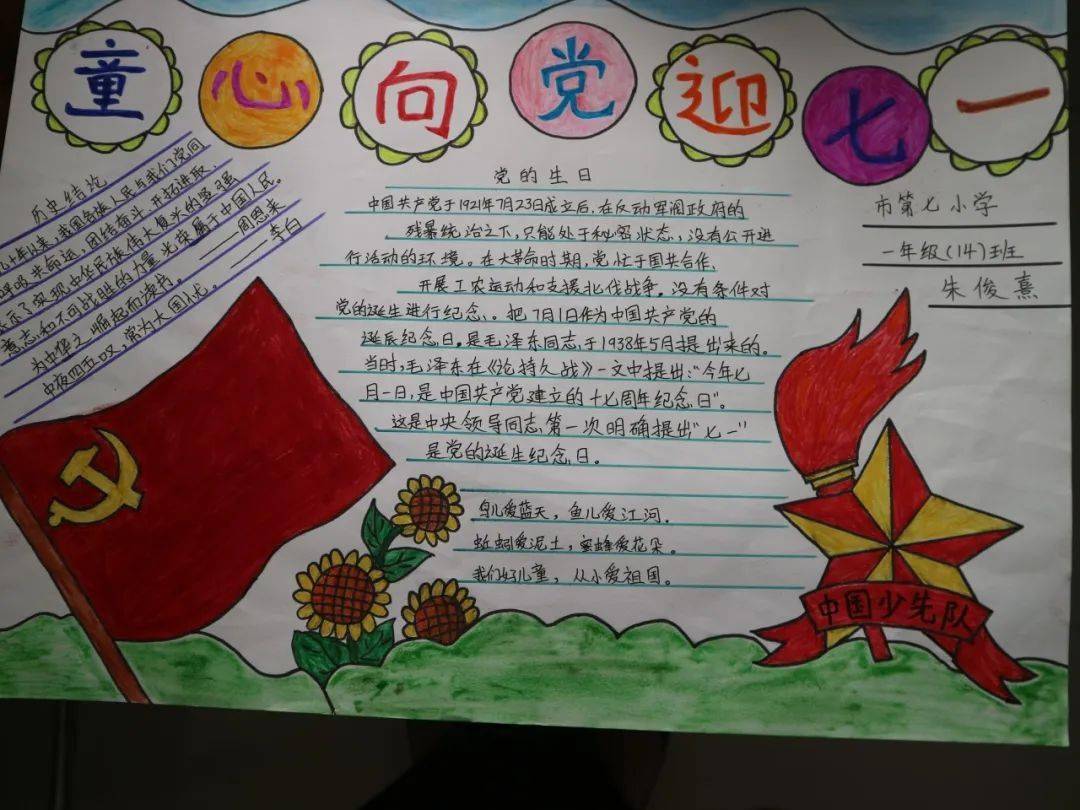 童心向党迎七一
历史结论
九十年以来,我国各族人民与我们党同
呼吸共命运,团结奋斗,开拓进取,
展示了实现中华民族伟大复兴的坚强
意志和不可战胜的力量光荣属于中国人民。
为中华之崛起而读书。——周恩来
中夜四五叹,常为大国忧。——李白
党的生日
中国共产党于1921年7月23日成立后,在反动军阀政府的
残暴统治之下,只能处于秘密状态,没有公开进
行活动的环境。在大革命时期,党忙于国共合作,
开展工农运动和支援北伐战争。没有条件对
党的诞生进行纪念、。把7月1日作为中国共产党的
诞辰纪念日。是毛泽东同志,于1938年5月提出来的。
当时,毛泽东在《论持久战》一文中提出:“今年七
月一日,是中国共产党建立的十七周年纪念日”。
这是中央领导同志第一次明确提出“七一”
是党的诞生纪念日。
鸟儿爱蓝天,鱼儿爱江河,
蚯蚓爱泥土,蜜蜂爱花朵。
我们好儿童,从小爱祖国。
市第七小学
一年级(14)班
朱俊熹
中国少先队